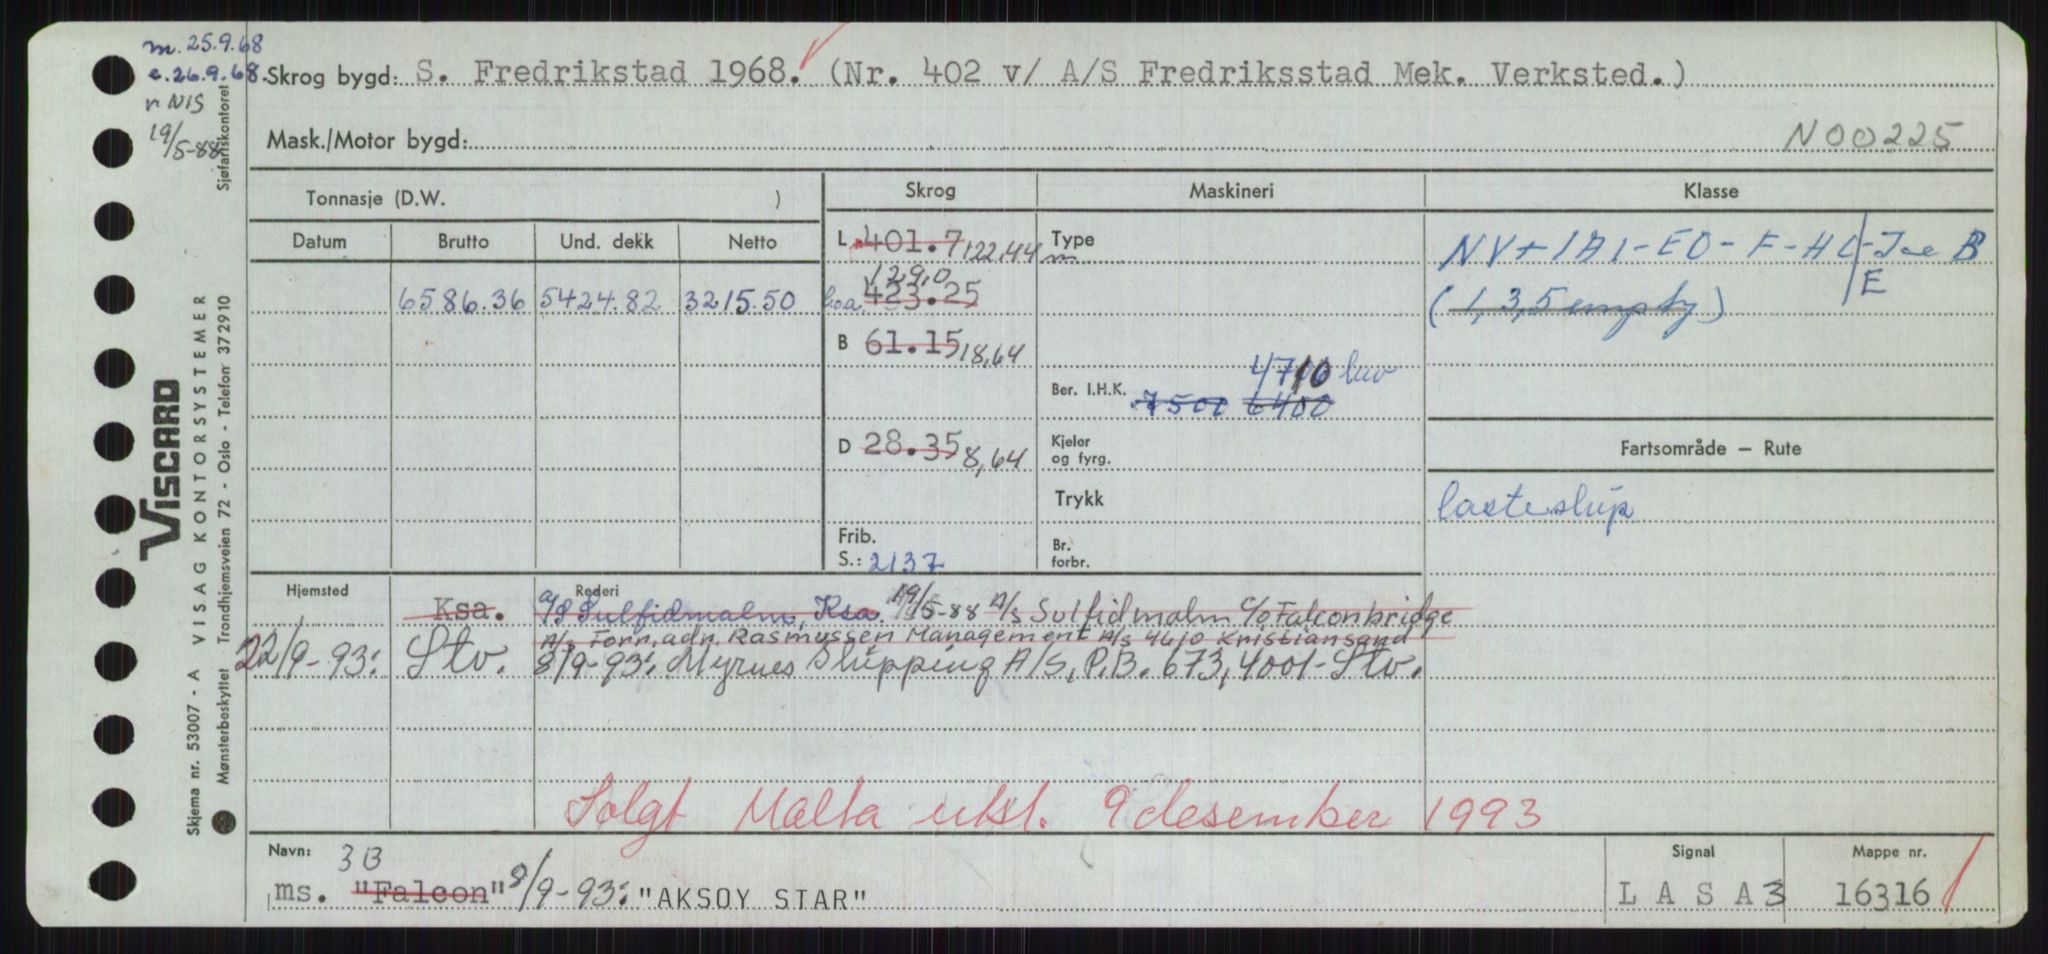 m. 25.9.68
e. 26.9.68.
r NIS
19/5-88
Skrog bygd: S. Fredrikstad 1968. (Nr. 402 v/ A/S Fredriksstad Mek. Verksted.)
Mask./Motor bygd: N00225
Sjøfartskontoret
Tonnasje (D.W. )
Skrog Maskineri Klasse
Datum Brutto Und. dekk Netto
6586.36 5424.82 3215.50
L 401.7 122,44 m
129.0
l.o.a. 423.25
B 61.15 18,64
D 28.35 8,64
Frib.
S.: 2137
Type
4710 bhv
Ber. I.H.K. 7500 6400
Kjeler
og fyrg.
Trykk
Br.
forbr.
NV+1A1-EO-F-HC-Ice B
E
(1,3,5 empty)
Fartsområde – Rute
lasteskip
Hjemsted Rederi
Ksa. A/S Sulfidmalm, Ksa. 19/5-88 A/s Sulfidmalm c/o Falconbridge
A/s Forr.adr. Rasmussen Management A/s 4610 Kristiansand
22/9-93: Stv. 8/9-93: Myrnes Shipping A/S, P.B. 673, 4001-Stv.
Solgt Malta utsl. 9 desember 1993
Navn: 3B
ms. "Falcon" 8/9-93: "AKSOY STAR"
Signal
L A S A 3
Mappe nr.
16316
VISCARD
Skjema nr. 53007 - A VISAG KONTORSYSTEMER
Mønsterbeskyttet Trondhjemsveien 72 - Oslo - Telefon 37 29 10